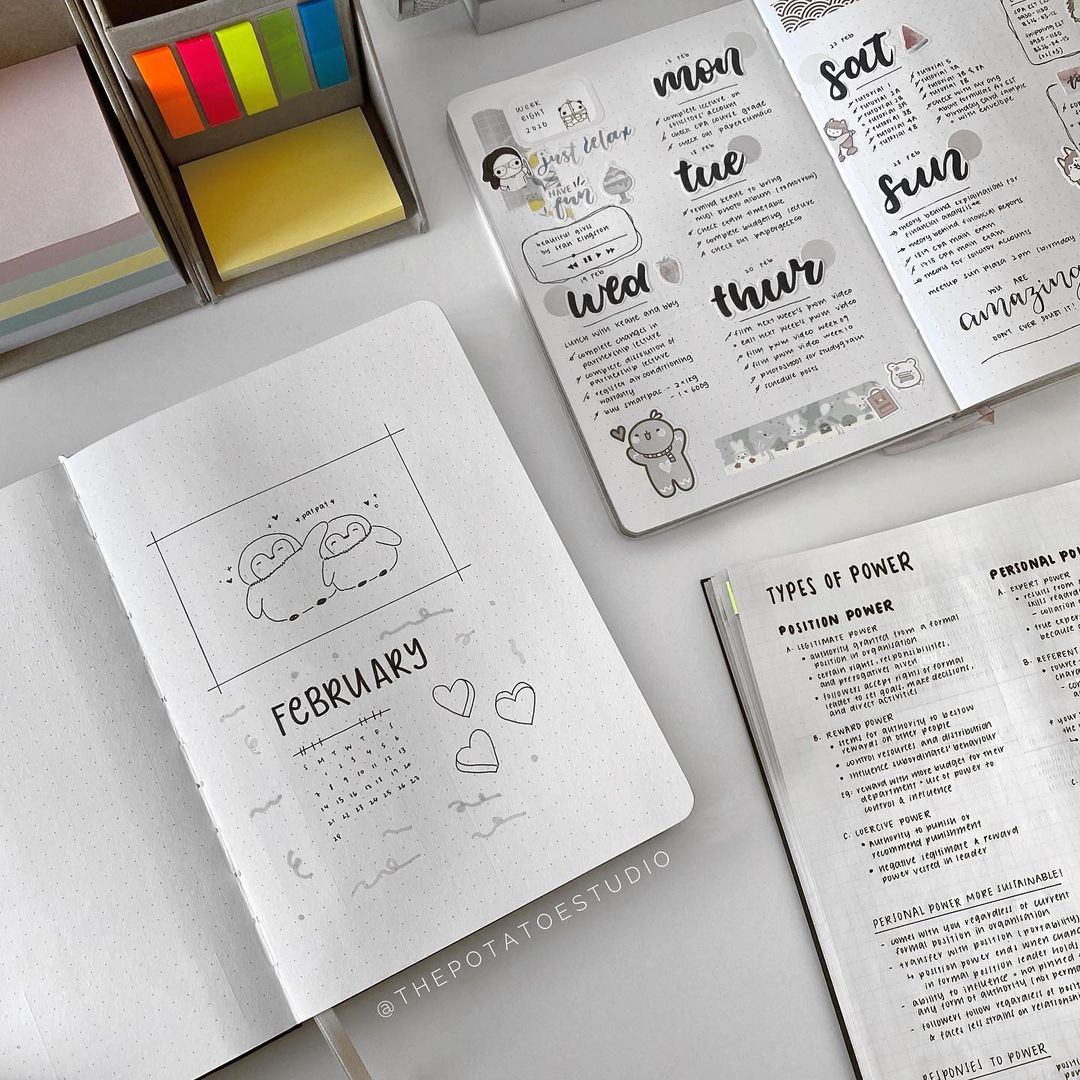 WEEK
EIGHT
2020
just relax
HAVE
fun
beautiful girls
by sean kingston
mon
complete lecture on
solicitors' account
check CPA course grade
check out paperkumoio
18 feb
tue
remind keane to bring
muji photo album (tomorrow)
check exam timetable
complete budgeting lecture
check out papergeekco
19 feb
wed
lunch with keane and bby
complete changes in
partnership lecture
complete dissolution of
partnership lecture
register air conditioning
warranty
buy smartpac - 2 x 1kg
- 1 x 600g
20 feb
thur
film next week's pwm video
edit next week's pwm video
film pwm video week 09
film pwm video week 10
photoshoot for studygram
schedule posts
22 feb
sat
tutorial 1
tutorial 2A
tutorial 2B
tutorial 3A
tutorial 4B
tutorial 5
check with ms ong
about formulas by EST
birthday card sample
with envelope
23 feb
sun
theory behind explanations for
financial analysis
theory behind financial reports
1819 CPA main exam
1718 CPA main exam
memo for solicitor accounts
meetup sun plaza 2pm (birthday
YOU ARE
amazing
DON'T EVER DOUBT IT!
*patpat*
FEBRUARY
S M T W T F S
1 2 3 4 5 6
7 8 9 10 11 12 13
14 15 16 17 18 19 20
21 22 23 24 25 26 27
28
@THEPOTATOESTUDIO
TYPES OF POWER
POSITION POWER
A. LEGITIMATE POWER
• authority granted from a formal
position in organisation
• certain rights, responsibilities,
and prerogatives given
• followers accept rights of formal
leader to set goals, make decisions,
and direct activities
B. REWARD POWER
• stems for authority to bestow
rewards on other people
• control resources and distribution
• influence subordinates' behaviour
Eg: reward with more budget for their
department - use of power to
control & influence
C. COERCIVE POWER
• authority to punish or
recommend punishment
• negative legitimate & reward
power vested in leader
PERSONAL POWER MORE SUSTAINABLE!
- comes with you regardless of current
formal position in organisation
- transfer with position (portability)
↳ position power ends when change
in formal position leader holds
- ability to influence - not pinned
any form of authority (not perma
- followers follow regardless of posit
& faces less strains on relationshi
RESPONSES TO POWER
PERSONAL POW
A. EXPERT POWER
• results from
skills regard
• true exper
because
B. REFERENT
• source
chara